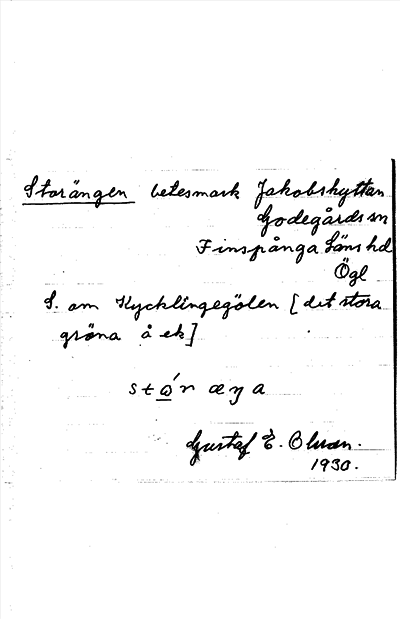 Storängen betesmark Jakobshyttan
Godegårds sn
Finspånga Läns hd
Ögl
S. om Kycklingegölen [det stora
gröna å ek]
stώr æŋa
Gustaf E. Olson.
1930.